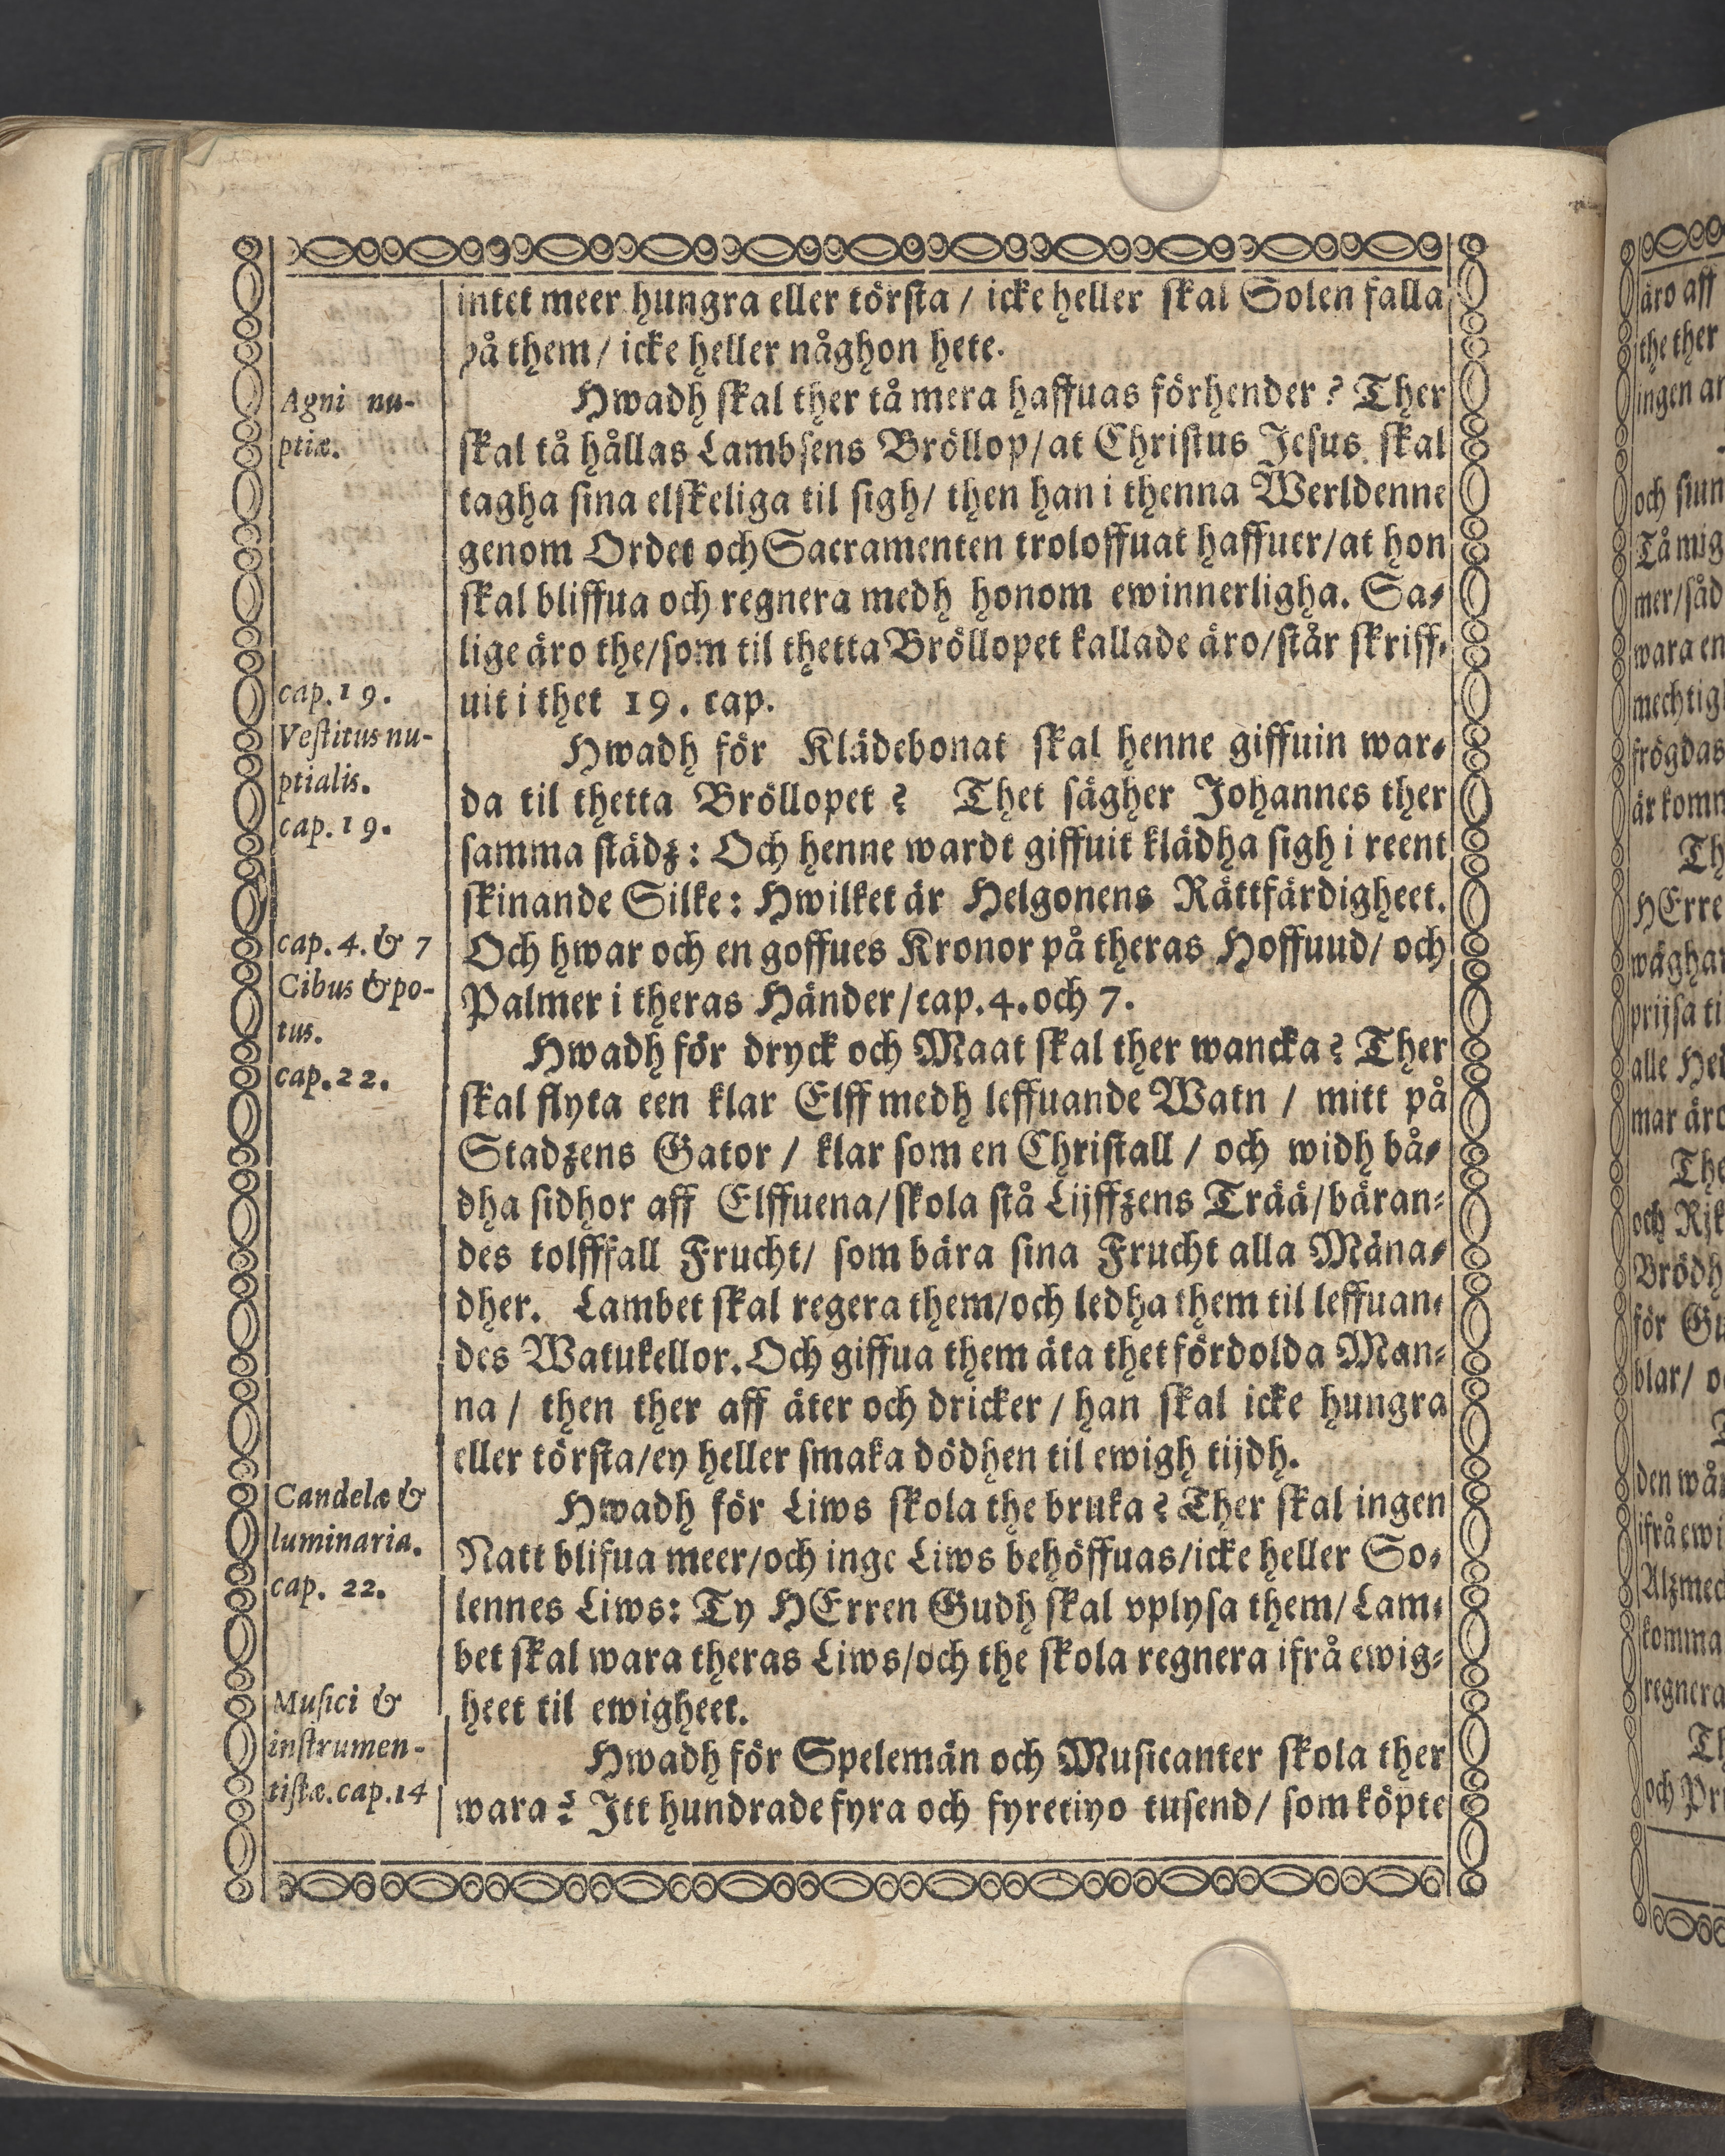 intet meer hungra eller törsta / icke heller skal Solen falla
på them / icke heller någhon hete.
Agni nu-
ptiæ.
Hwadh skal ther tå mera haffuas förhender? Ther
skal tå hållas Lambsens Bröllop/ at Christus Jesus skal
tagha sina elskeliga til sigh/ then han i thenna Werldenne
genom Ordet och Sacramenten troloffuat haffuer/at hon
skal bliffua och regnera medh honom ewinnerligha. Sa-
lige äro the/som til thetta Bröllopet kallade äro/står skriff-
uit i thet 19. cap.
cap.19.
Vestitus nu-
ptialis.
cap.19.
Hwadh för Klädebonat skal henne giffuin war-
da til thetta Bröllopet? Thet sägher Johannes ther
samma städz: Och henne wardt giffuit klädha sigh i reent
skinande Silke: Hwilket är Helgonens Rättfärdigheet.
Och hwar och en goffues Kronor på theras Hoffuud/ och
Palmer i theras Händer/cap.4.och 7.
cap.4.& 7
Cibus & po-
tus.
cap.22.
Hwadh för dryck och Maat skal ther wancka? Ther
skal flyta een klar Elff medh leffuande Watn / mitt på
Stadzens Gator / klar som en Christall / och widh bå-
dha sidhor aff Elffuena/skola stå Lijffzens Trää/bäran-
des tolfffall Frucht/ som bära sina Frucht alla Måna-
dher. Lambet skal regera them/och ledha them til leffuan-
des Watukellor. Och giffua them äta thet fördolda Man-
na / then ther aff äter och dricker / han skal icke hungra
eller törsta/ey heller smaka dödhen til ewigh tijdh.
Candelæ &
luminaria.
cap. 22.
Hwadh för Liws skola the bruka? Ther skal ingen
Natt blifua meer/och inge Liws behöffuas/icke heller So-
lennes Liws: Ty HErren Gudh skal vplysa them/ Lam-
bet skal wara theras Liws/och the skola regnera ifrå ewig-
heet til ewigheet.
Musici &
instrumen-
tistæ.cap.14
Hwadh för Spelemän och Musicanter skola ther
wara? Itt hundrade fyra och fyretiyo tusend/ som köpte
äro aff
the ther
och siun
Tå mig
mer/såd
wara en
frögdas
HErre
prijsa ti
alle Hei
mar äro
Brödh
för Gu
den wår
ifrå ewi
komma
regnera